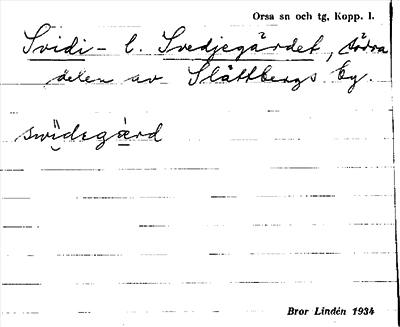 Orsa sn och tg, Kopp. l.
Svidi- l. Svedjegårdet, södra
delen av Slättbergs by.
swïdegård
Bror Lindén 1934